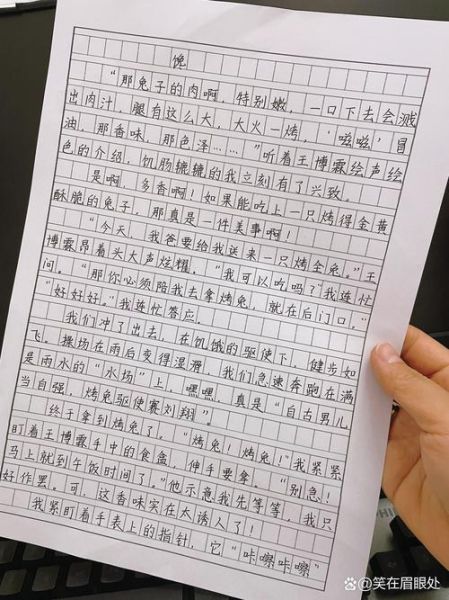 馋
“那兔子的肉啊，特别嫩，一口下去会溅
出肉汁，腿有这么大，大火一烤，‘嗞嗞’冒
油，那香味，那色泽……”听着王博霖绘声绘
色的介绍，饥肠辘辘的我立刻有了兴致。
是啊，多香啊！如果能吃上一只烤得金黄
酥脆的兔子，那真是一件美事啊！
“今天，我爸要给我送来一只烤全兔。”王
博霖昂着头大声炫耀。“我可以吃吗？”我连忙
问。“那你必须陪我去拿烤兔，就在后门口。”
“好好好。”我连忙答应。
我们冲了出去，在饥饿的驱使下，健步如
飞。操场在雨后变得湿滑，我们急速奔跑在满
是雨水的“水场”上，嘿嘿，真是“自古男儿
当自强，烤兔驱使赛刘翔”。
终于拿到烤兔了。“烤兔！烤兔！”我紧紧
盯着王博霖手中的食盒，伸手要拿。“别急！
马上就到午饭时间了。”他示意我先等等，我只
好作罢。可，这香味实在太诱人了！
我紧盯着手表上的指针，它“咔嚓咔嚓”
笑在眉眼处
Baidu百科